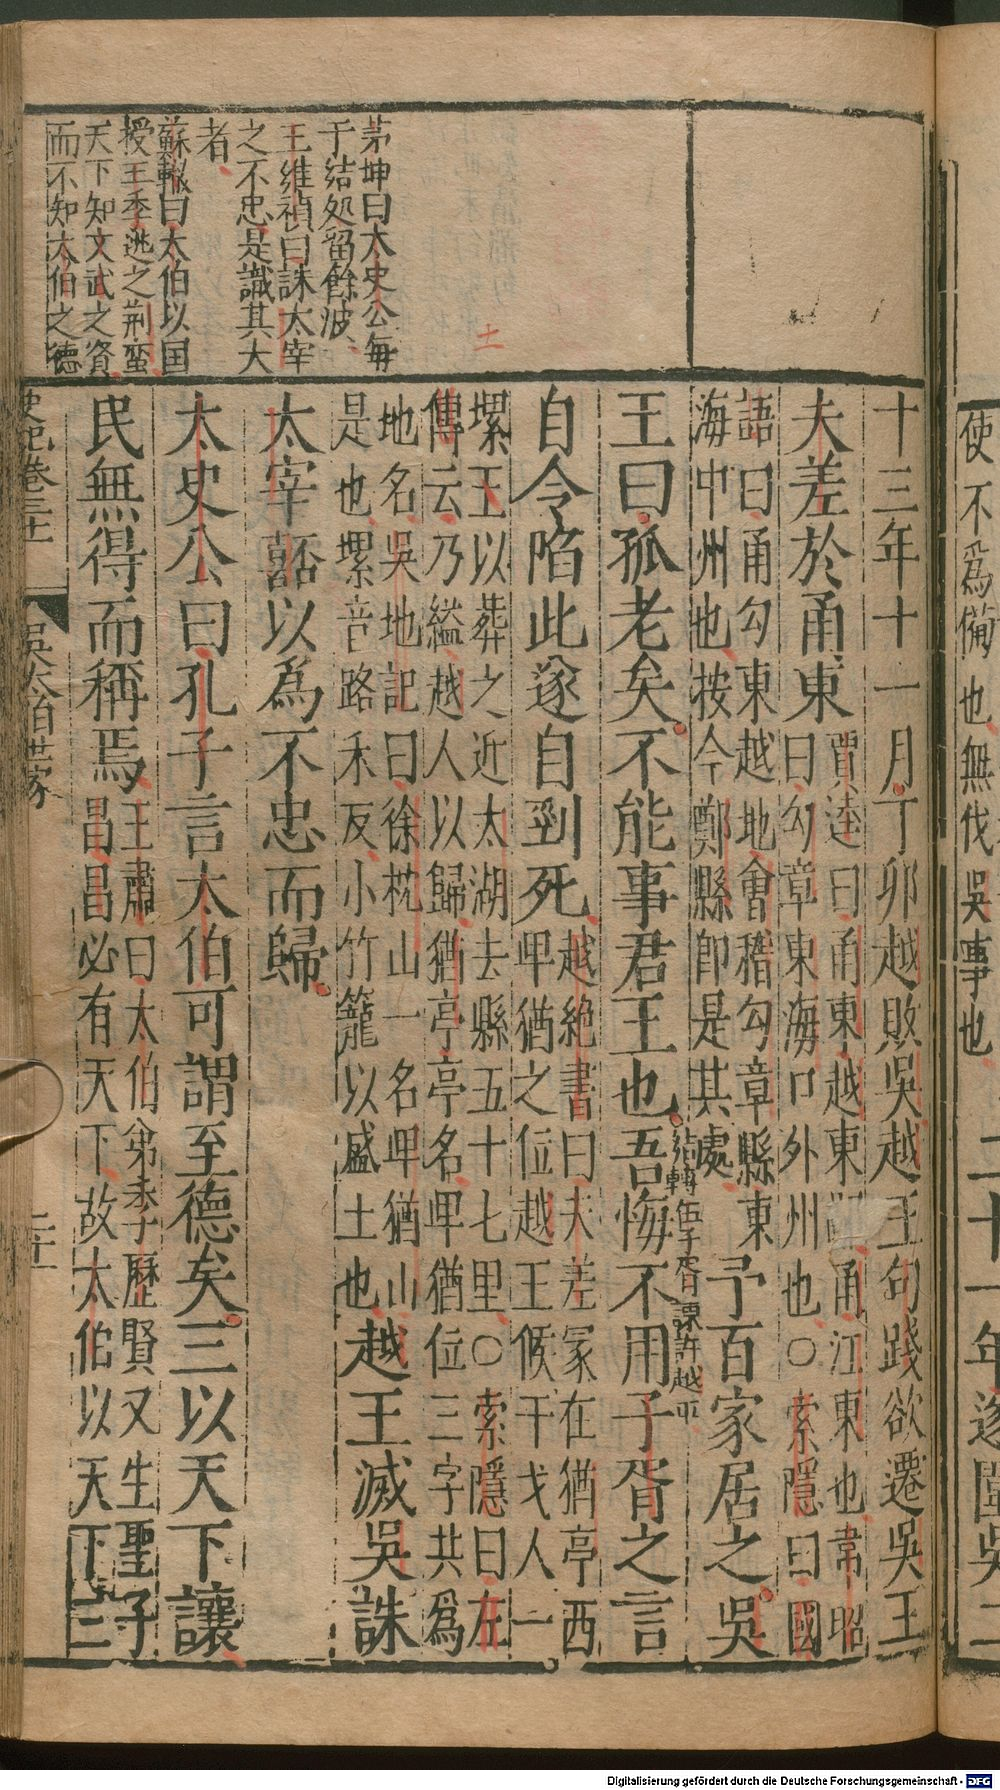 使不為備也無伐吳事也 二十一年遂圍吳二
十三年十一月丁卯越敗吳越王句踐欲遷吳王
夫差於甬東
賈逵曰甬東越東 甬江東也韋昭
曰勾章東海口外州也○索隱曰國
語曰甬勾東越地會稽勾章縣東
海中州也按今鄮縣即是其處
予百家居之吳
王曰孤老矣不能事君王也吾悔不用子胥之言
結轉伍子胥諫許越平
自令陷此遂自剄死
越絕書曰夫差冢在猶亭西
卑猶之位越王候干戈人一
𡐛王以葬之近太湖去縣五十七里○索隱曰左
傳云乃縊越人以歸猶亭亭名卑猶位三字共為
地名吳地記曰徐枕山一名卑猶山
是也𡐛音路禾反小竹籠以盛土也
越王滅吳誅
太宰嚭以為不忠而歸
太史公曰孔子言太伯可謂至德矣三以天下讓
民無得而稱焉
王肅曰太伯弟季歷賢又生聖子
昌昌必有天下故太伯以天下三
茅坤曰太史公每
于结処留餘波
王維禎曰誅太宰
之不忠是識其大
者
蘇轍曰太伯以国
授王季逃之荆蛮
天下知文武之資
而不知太伯之德
土
史記卷三十一 吳太伯世家 二十一
Digitalisierung gefördert durch die Deutsche Forschungsgemeinschaft - DFG